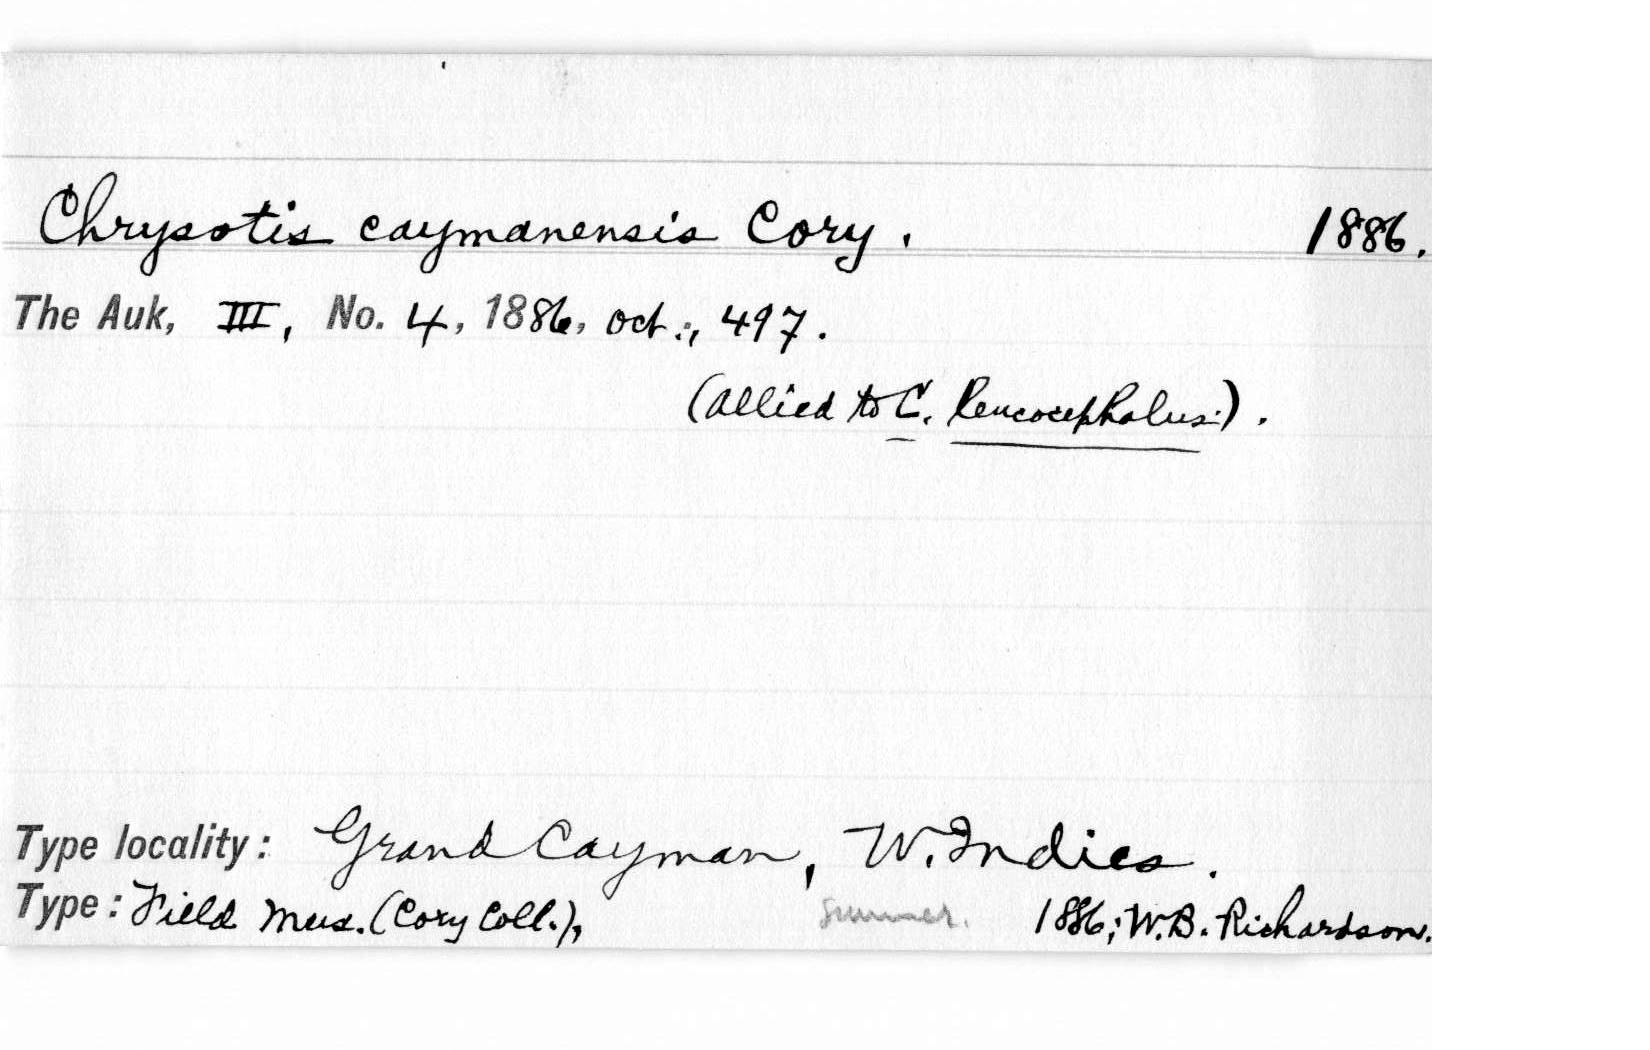 Chrysotis caymanensis Cory. 1886.
The Auk, III, No. 4, 1886, Oct., 497.
(Allied to C. leucocephalus).
Type locality: Grand Cayman, W. Indies.
Type: Field Mus. (Cory Coll.), summer. 1886; W.B. Richardson.